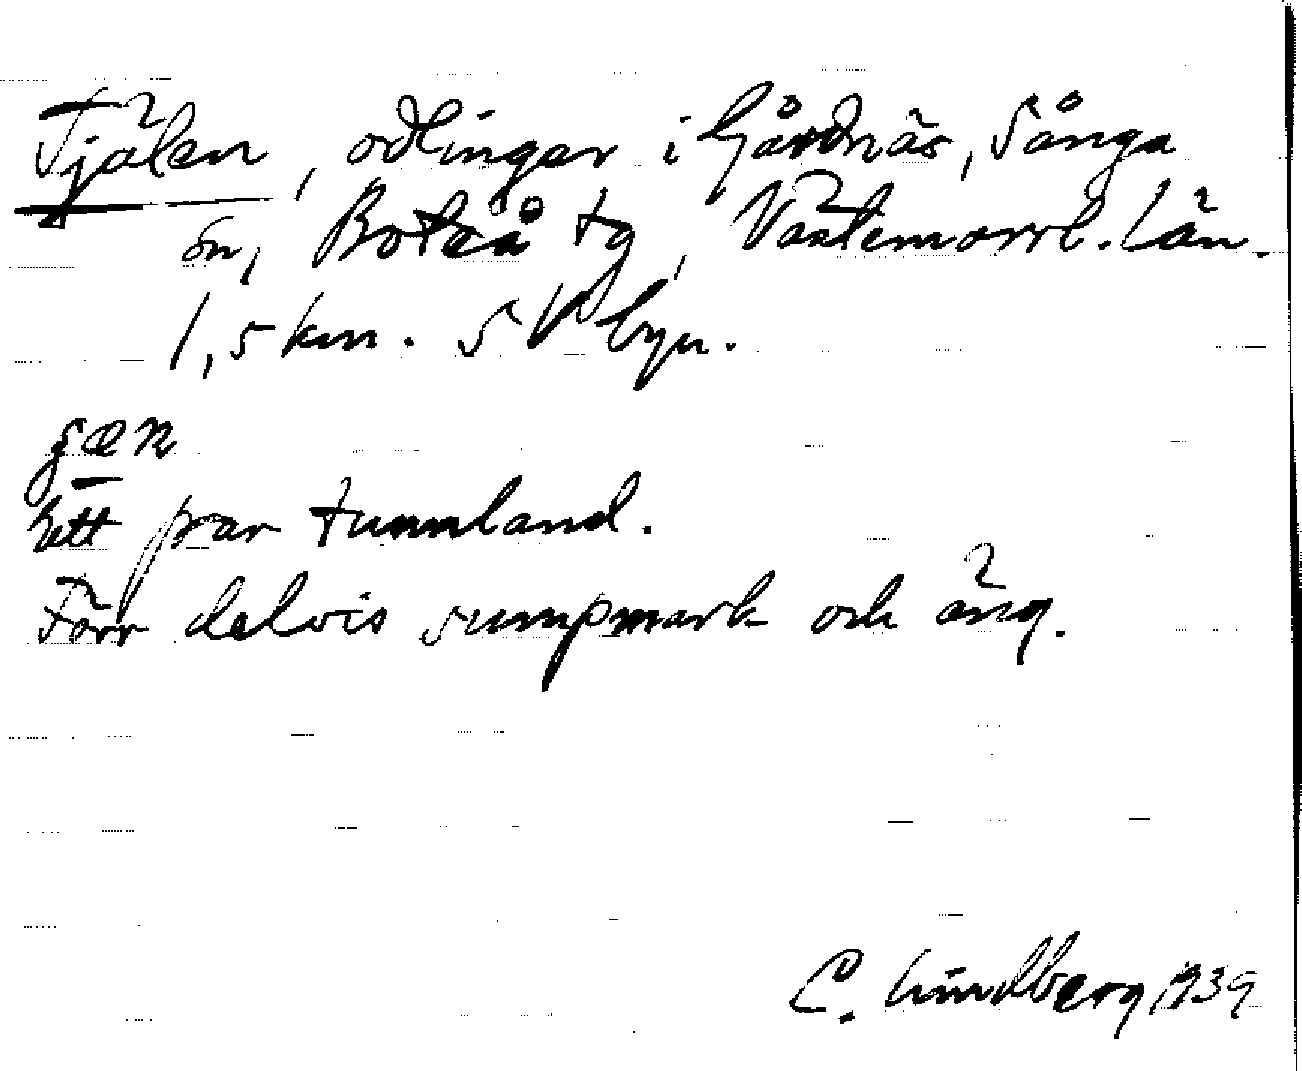 Tjälen, odlingar i Gårdnäs, Sånga
sn, Boteå tg, Västernorrl. län.
1,5 km. SV byn.
ʃæn
Ett par tunnland.
Förr delvis sumpmark och äng.
C. Lindberg 1939